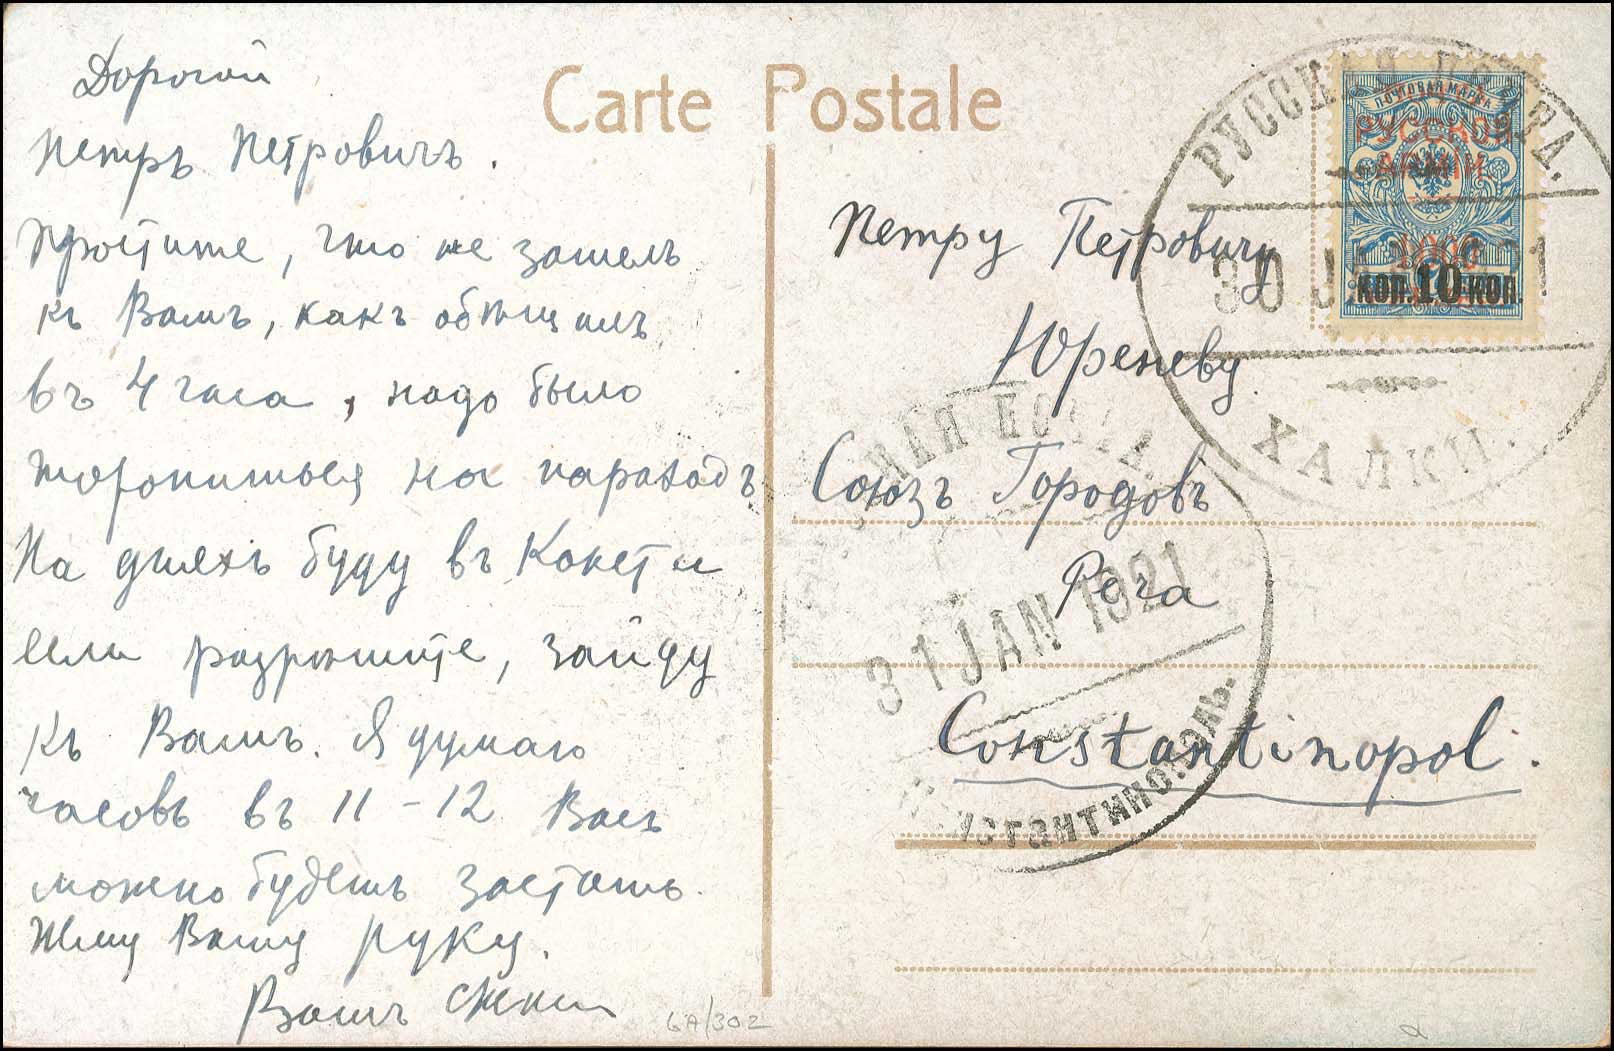 Carte Postale
Дорогой
Петръ Петровичъ.
Простите, что не зашелъ
къ Вамъ, какъ обѣщалъ
въ 4 часа, надо было
торопиться на пароходъ
На дняхъ буду въ Конст и
если разрѣшите, зайду
къ Вамъ. Я думаю
часовъ въ 11 – 12 Васъ
можно будетъ застать.
Жму Вашу руку.
Вашъ
6A/302
Петру Петровичу
Юреневу
Союзъ Городовъ
Pera
Constantinopol.
РУССКАЯ ПОЧТА.
30 J 1
ХАЛКИ.
ПОЧТОВАЯ МАРКА
РУССКОЙ
АРМIИ.
КОП. 10 КОП.
КАЯ ПОЧТА.
31 JAN 1921
КОНСТАНТИНОПОЛЬ.